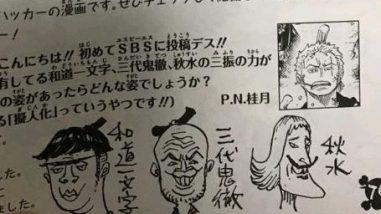 ハッカーの漫画です。ぜひチェック
ー！
こんにちは!! 初めてSBSに投稿デス!!
エスビーエス とうこう
有してる和道一文字、三代鬼徹、秋水の三振の力が
の姿があったらどんな姿でしょうか?
る「擬人化」っていうやつです!!)
P.N.桂月
和道一文字
三代鬼徹
秋水
した。